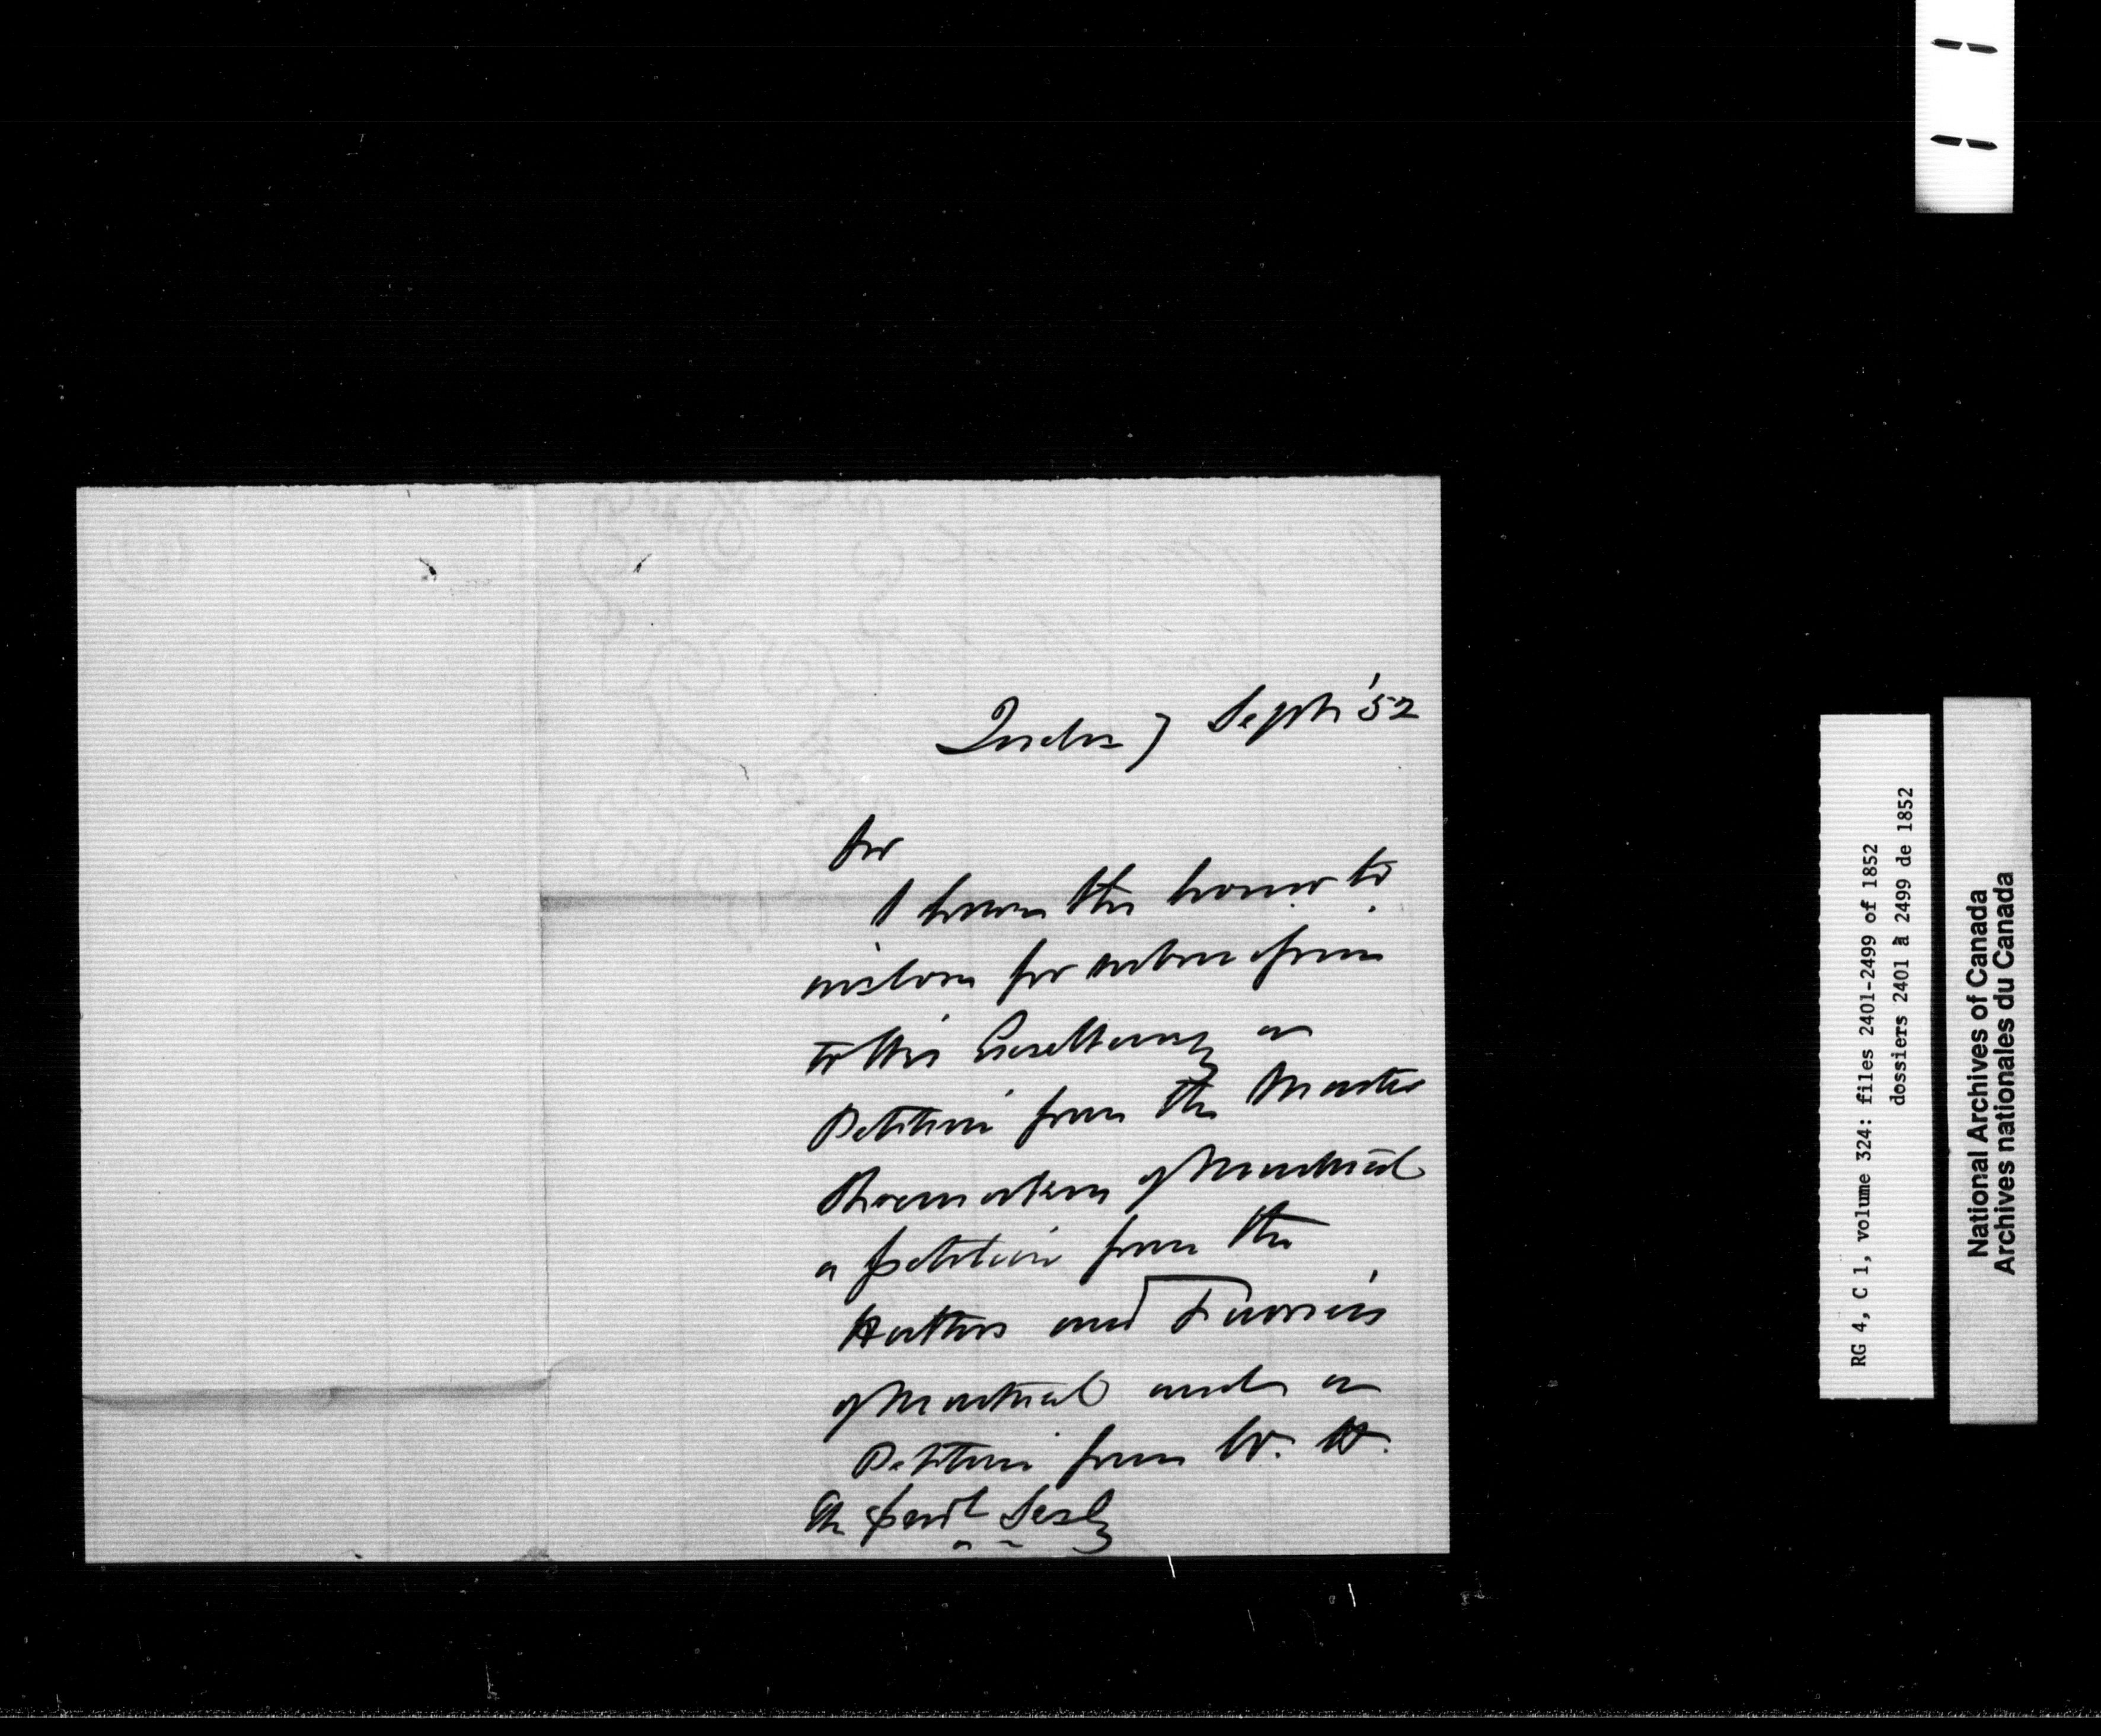 Quebec 7 Sept '52
Sir
I have the honor to
inclose for submission
to His Excellency a
Petition from the Master
Shoemakers of Montreal
a petition from the
Hatters and Furriers
of Montreal and a
Petition from W. H.
The Provl Secly
RG 4, C 1, volume 324: files 2401-2499 of 1852
dossiers 2401 à 2499 de 1852
National Archives of Canada
Archives nationales du Canada